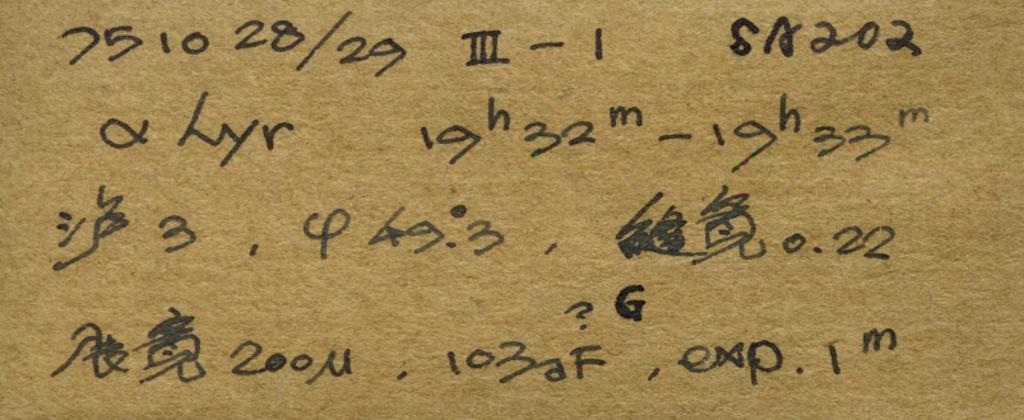 751028/29 III-1 SA202
α Lyr 19ʰ32ᵐ-19ʰ33ᵐ
3, φ 49.°3, 縫宽 0.22
? G
展宽 200μ, 103aF, exp. 1ᵐ